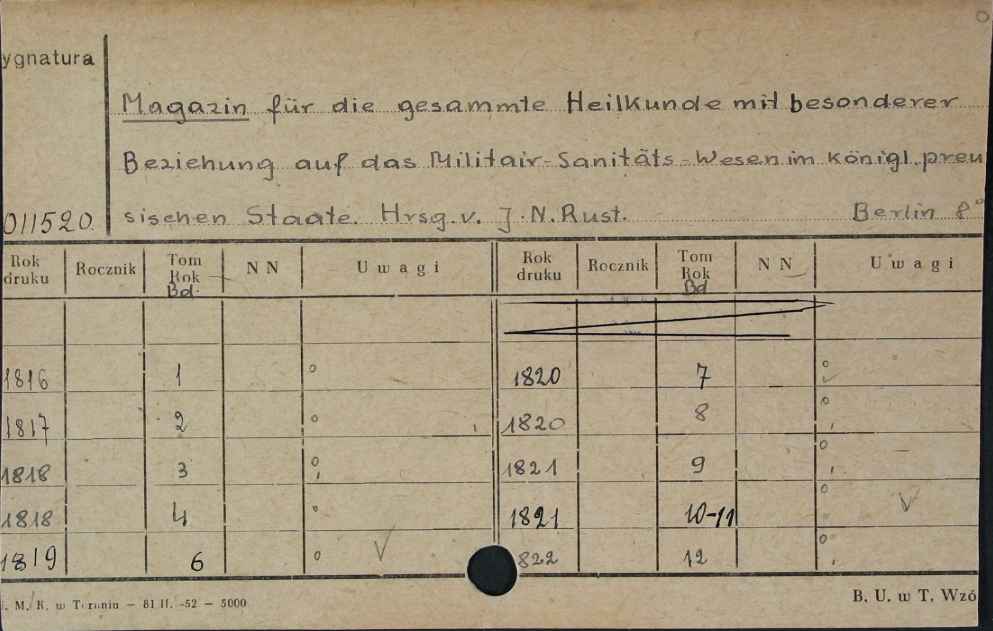 ygnatura
Magazin für die gesammte Heilkunde mit besonderer
Beziehung auf das Militair-Sanitäts-Wesen im königl. preu
011520. sischen Staate. Hrsg. v. J. N. Rust. Berlin 8°
Rok druku Rocznik Tom Rok Bd. N N Uwagi Rok druku Rocznik Tom Rok Bd N N Uwagi
1816 1 ° 1820 7 °
1817 2 ° 1820 8 °
1818 3 ° 1821 9 °
1818 4 ° 1821 10-11 °
1819 6 ° 822 12 °
M. K. w Toruniu — 81 II. -52 — 5000 B. U. w T. Wzó